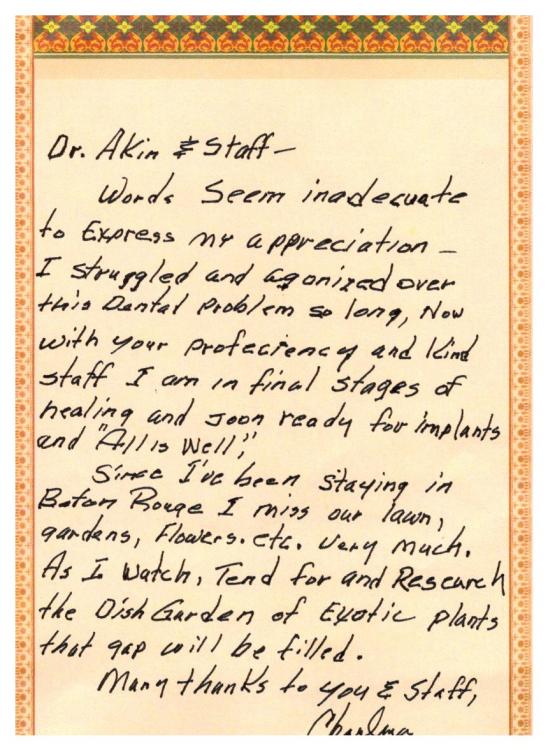 Dr. Akin & Staff —
Words Seem inadecuate
to Express my appreciation —
I struggled and agonized over
this Dental Problem so long, Now
with your profeciency and Kind
staff I am in final stages of
healing and soon ready for implants
and "All is Well",
Since I've been staying in
Baton Rouge I miss our lawn,
gardens, Flowers. etc. very much.
As I Watch, Tend for and Research
the Dish Garden of Exotic plants
that gap will be filled.
Many thanks to you & Staff,